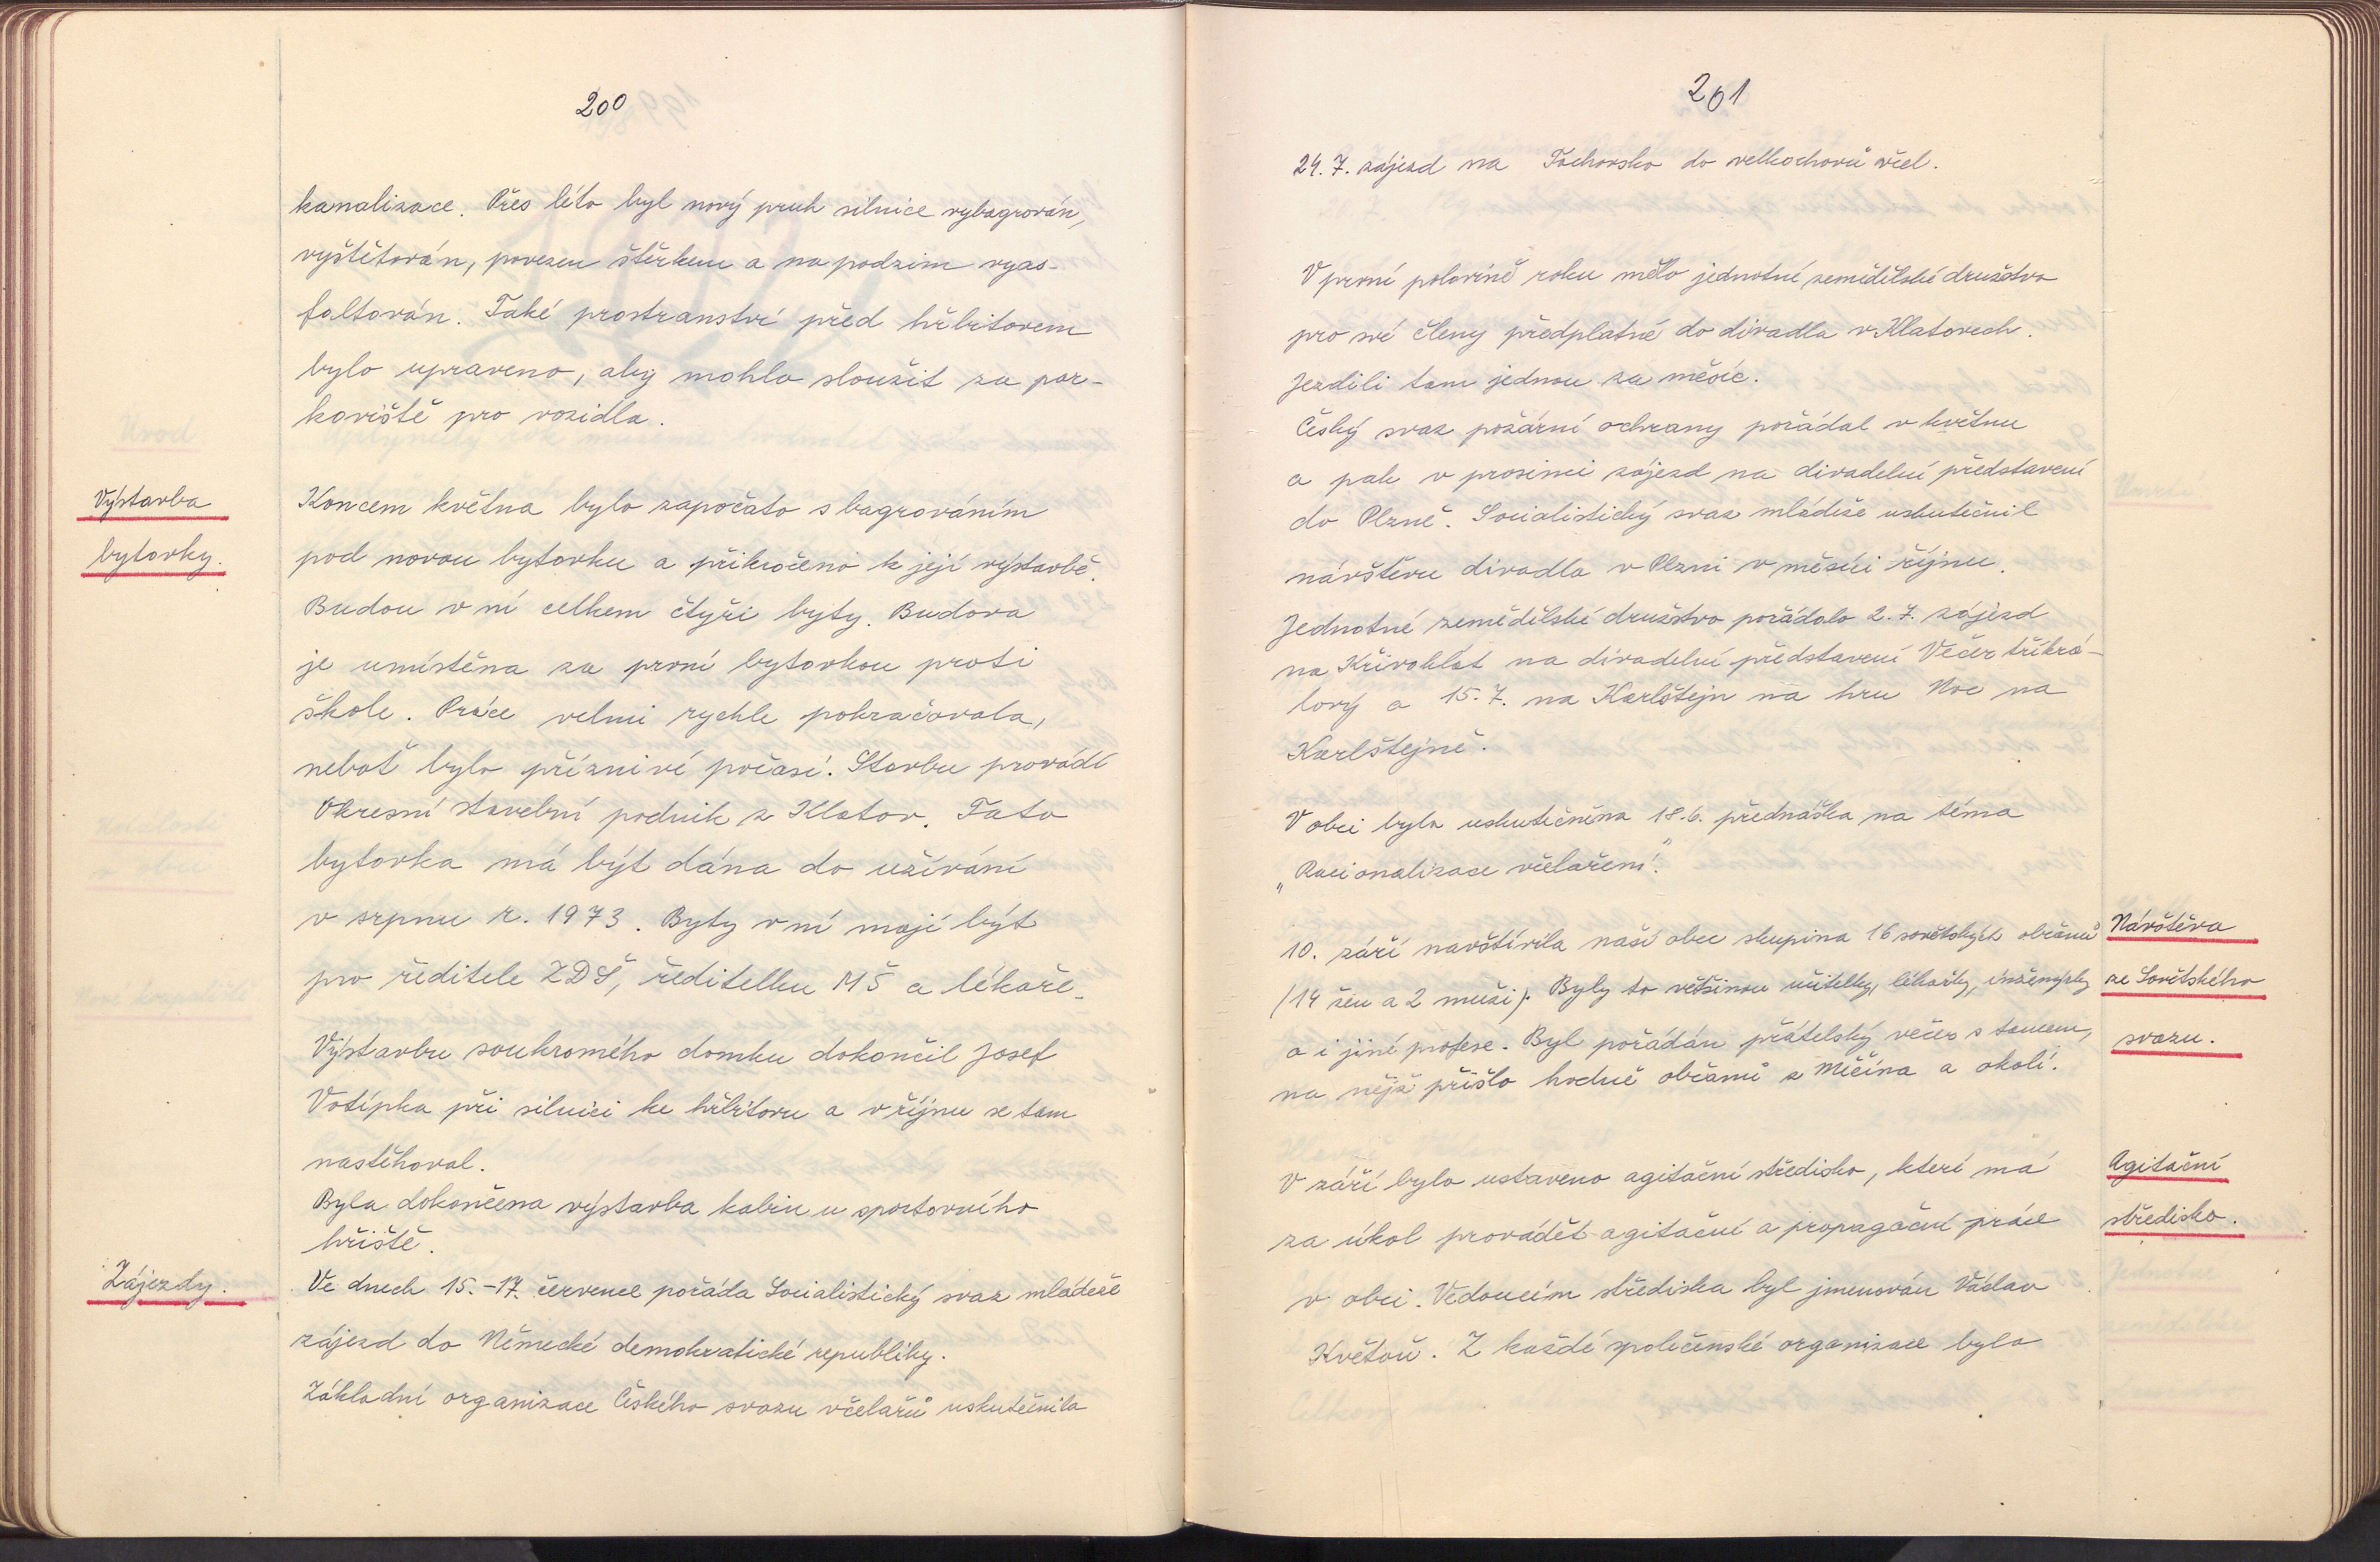 200
kanalizace. Přes léto byl nový pruh silnice vybagrován,
vyštětován, povezen štěrkem a na podzim vyas-
faltován. Také prostranství před hřbitovem
bylo upraveno, aby mohlo sloužit za par-
koviště pro vozidla.
Výstavba
bytovky.
Koncem května bylo započato s bagrováním
pod novou bytovku a přikročeno k její výstavbě.
Budou v ní celkem čtyři byty. Budova
je umístěna za první bytovkou proti
škole. Práce velmi rychle pokračovala,
neboť bylo příznivé počasí. Stavbu provádí
Okresní stavební podnik z Klatov. Tato
bytovka má být dána do užívání
v srpnu r. 1973. Byty v ní mají být
pro ředitele ZDŠ, ředitelku MŠ a lékaře.
Výstavbu soukromého domku dokončil Josef
Votípka při silnici ke hřbitovu a v říjnu se tam
nastěhoval.
Byla dokončena výstavba kabin u sportovního
hřiště.
Zájezdy.
Ve dnech 15.-17. července pořáda Socialistický svaz mládeže
zájezd do Německé demokratické republiky.
Základní organizace Českého svazu včelařů uskutečnila
201
24. 7. zájezd na Tachovsko do velkochovů včel.
V první polovině roku mělo jednotné zemědělské družstvo
pro své členy předplatné do divadla v Klatovech.
Jezdili tam jednou za měsíc.
Český svaz požární ochrany pořádal v květnu
a pak v prosinci zájezd na divadelní představení
do Plzně. Socialistický svaz mládeže uskutečnil
návštěvu divadla v Plzni v měsíci říjnu.
Jednotné zemědělské družstvo pořádalo 2. 7. zájezd
na Křivoklát na divadelní představení Večer tříkrá-
lový a 15. 7. na Karlštejn na hru Noc na
Karlštejně.
V obci byla uskutečněna 18. 6. přednáška na téma
„Racionalizace včelaření."
Návštěva
ze Sovětského
svazu.
10. září navštívila naši obec skupina 16 sovětských občanů
(14 žen a 2 muži). Byly to většinou učitelky, lékařky, inženýrky
a i jiné profese. Byl pořádán přátelský večer s tancem,
na nějž přišlo hodně občanů z Měčína a okolí.
Agitační
středisko.
V září bylo ustaveno agitační středisko, které má
za úkol provádět agitační a propagační práce
v obci. Vedoucím střediska byl jmenován Václav
Květoň. Z každé společenské organizace bylo